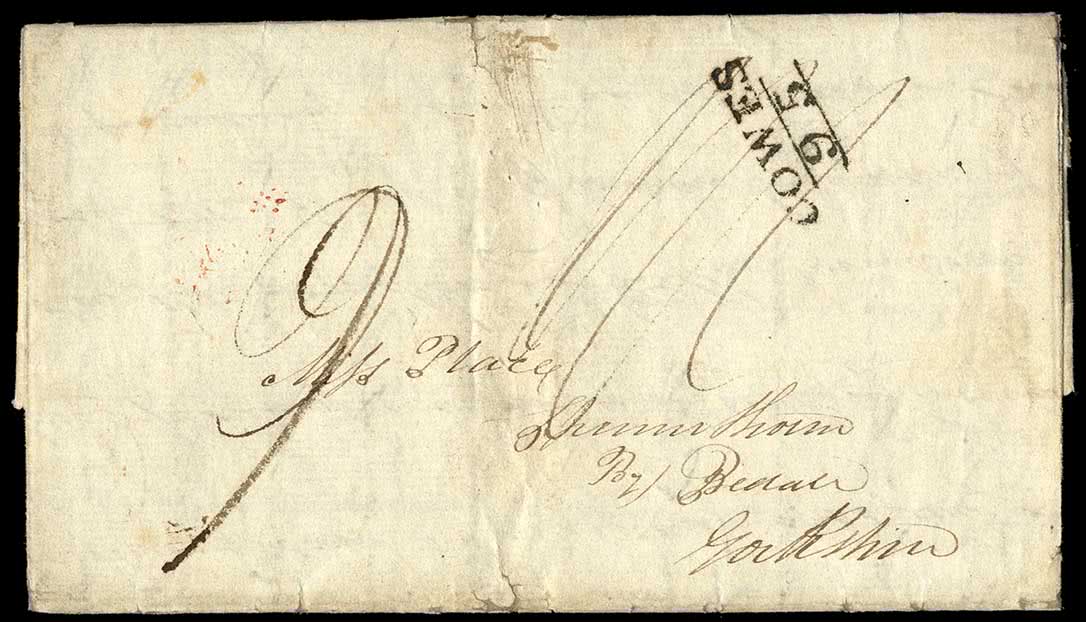 COWES
95
9
Miss Place
Skinnerthorn
By Bedale
Yorkshire